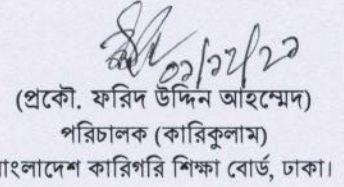 ০১/১২/২১
(প্রকৌ. ফরিদ উদ্দিন আহম্মেদ)
পরিচালক (কারিকুলাম)
বাংলাদেশ কারিগরি শিক্ষা বোর্ড, ঢাকা।